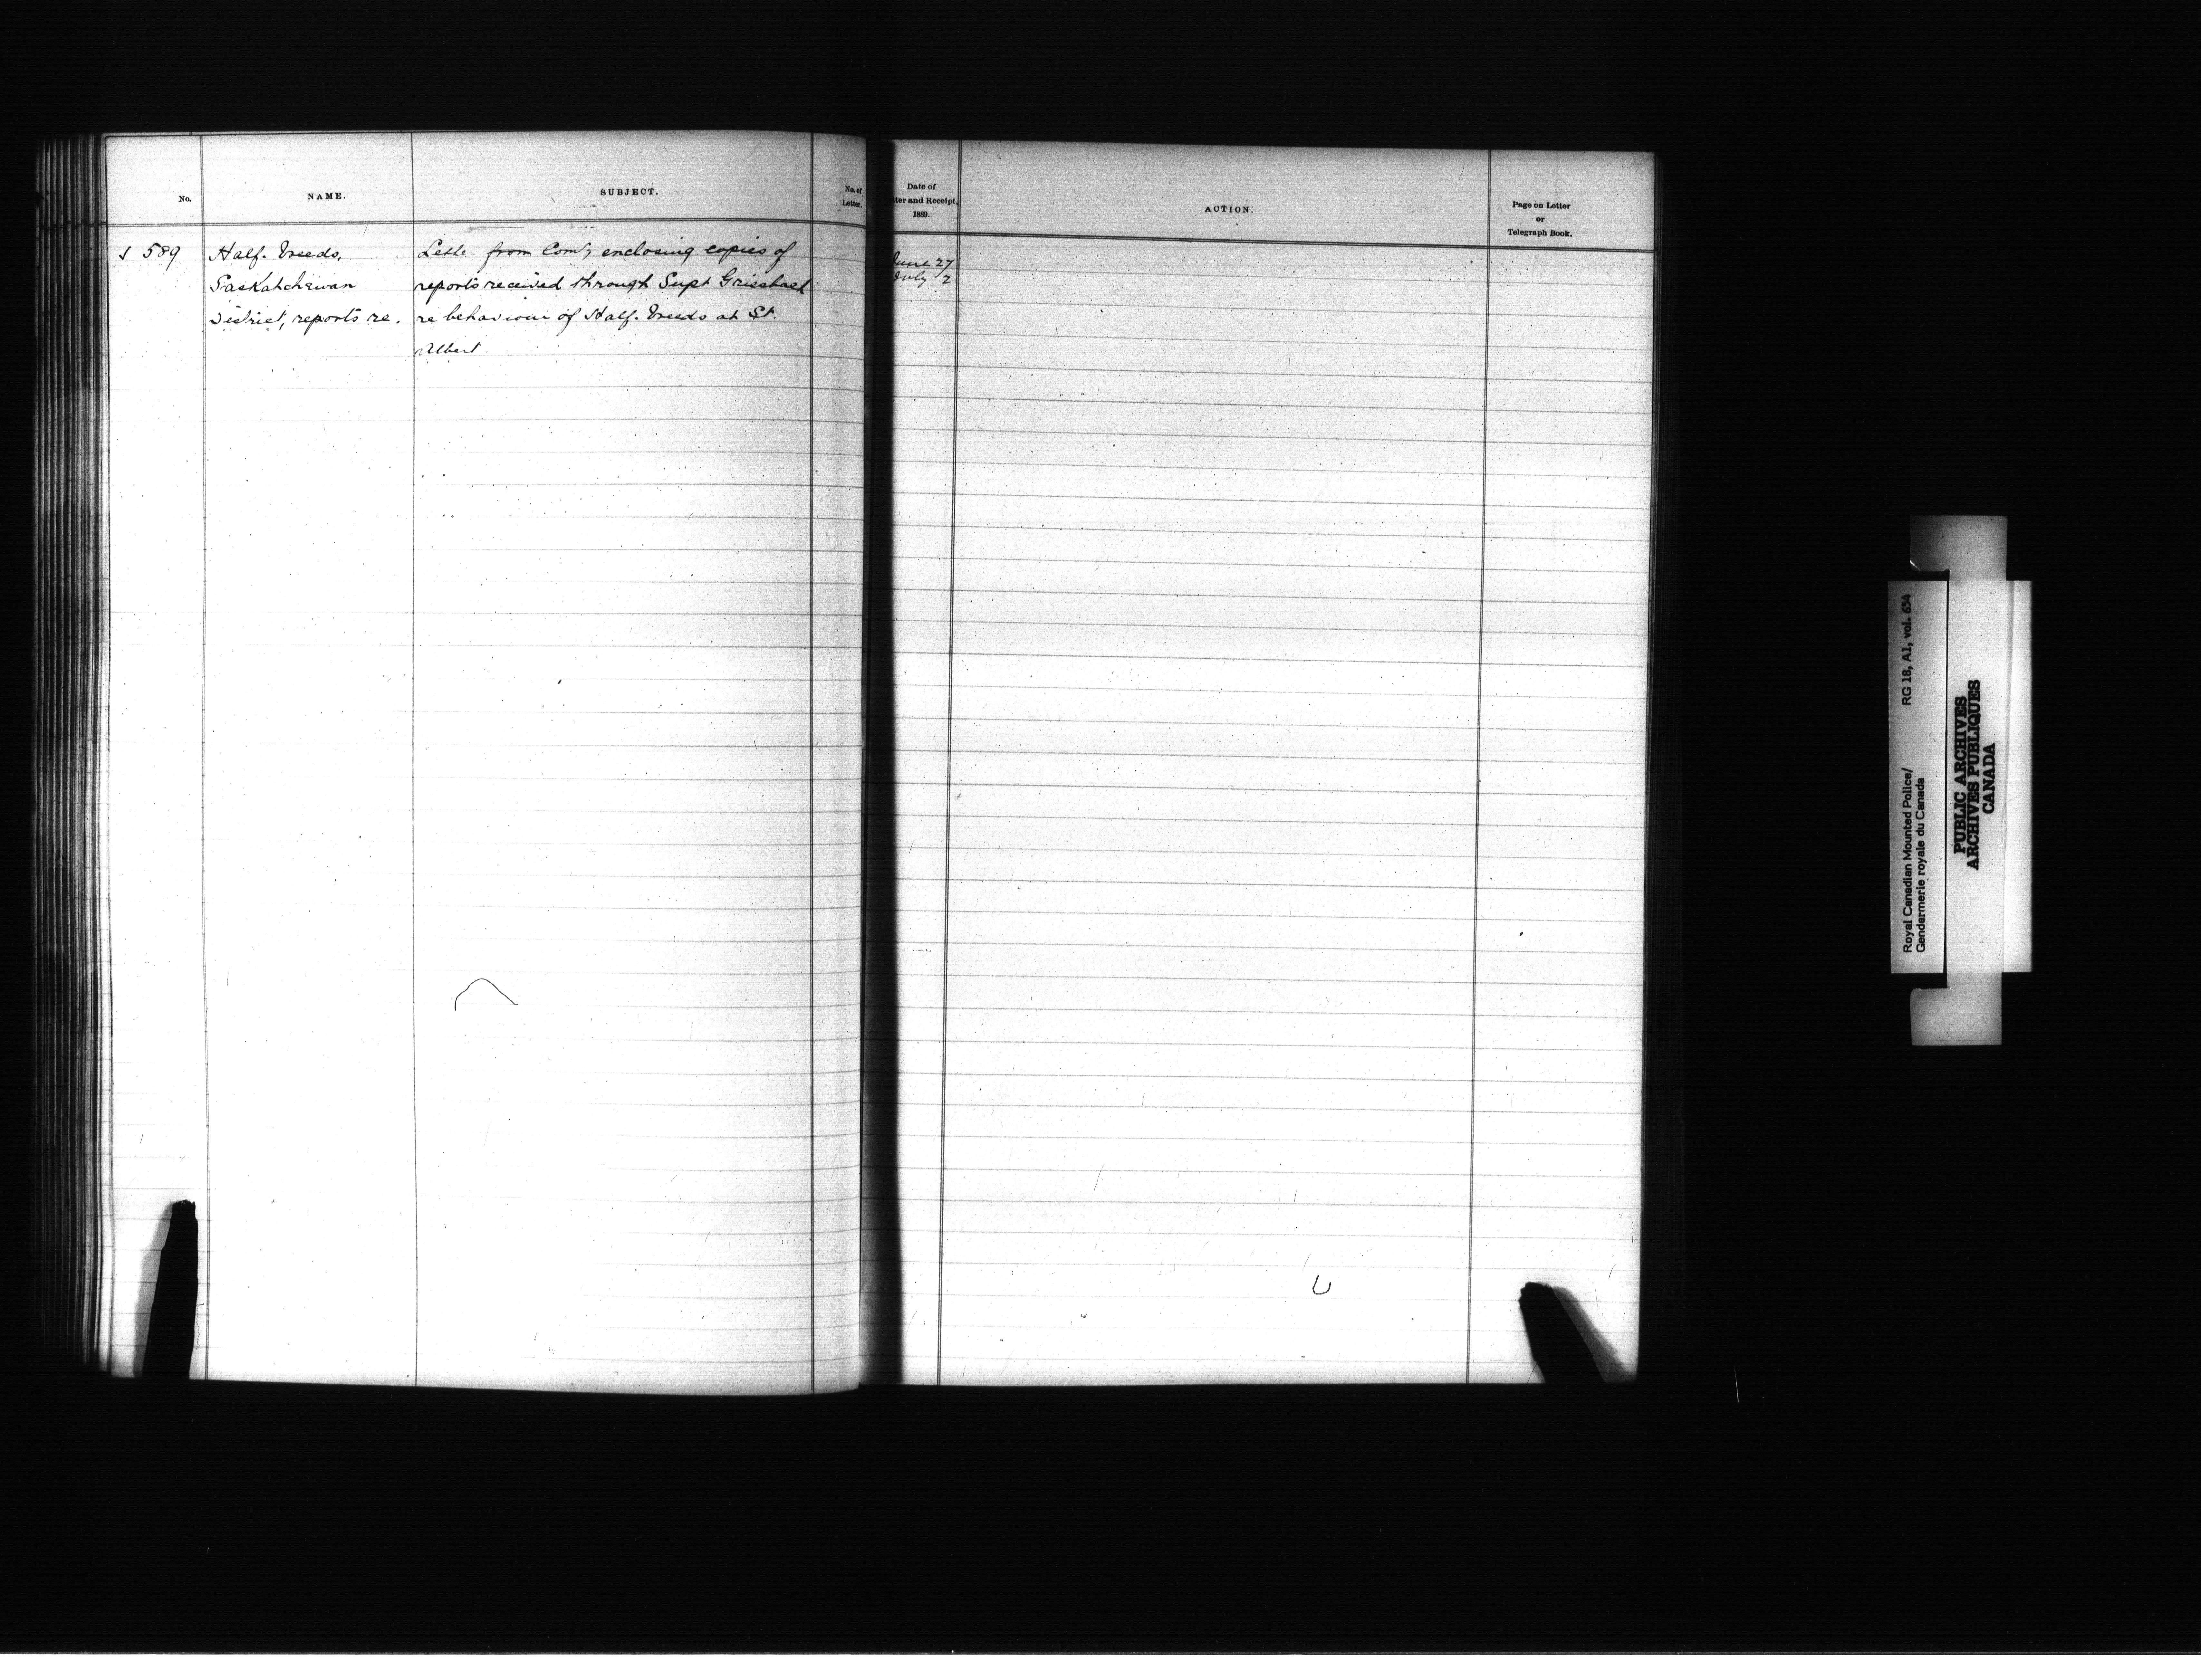 No.
NAME.
SUBJECT.
No. of
Letter.
Date of
ter and Receipt,
1889.
ACTION.
Page on Letter
or
Telegraph Book.
589
Half-breeds,
Saskatchewan
District, reports re.
Letter from Comr, enclosing copies of
reports received through Supt Griesbach
re behaviour of Half-breeds at St.
Albert
June 27
July 2
Royal Canadian Mounted Police/
Gendarmerie royale du Canada
RG 18, A1, vol. 654
PUBLIC ARCHIVES
ARCHIVES PUBLIQUES
CANADA